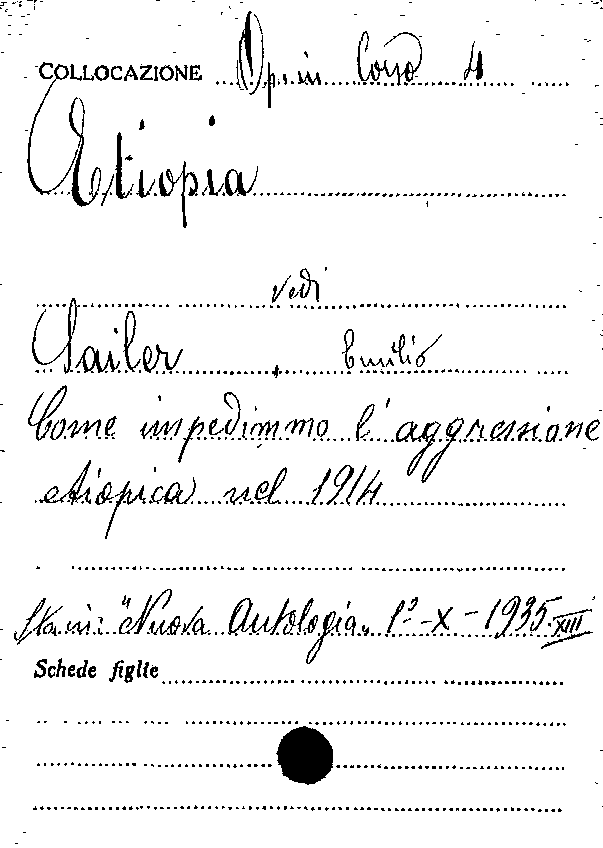 COLLOCAZIONE Op. in Corso 4
Etiopia
vedi
Sailer, Emilio
Come impedimmo l'aggressione
etiopica nel 1914
Sta in: "Nuova Antologia" 1º-X-1935-XIII
Schede figlie